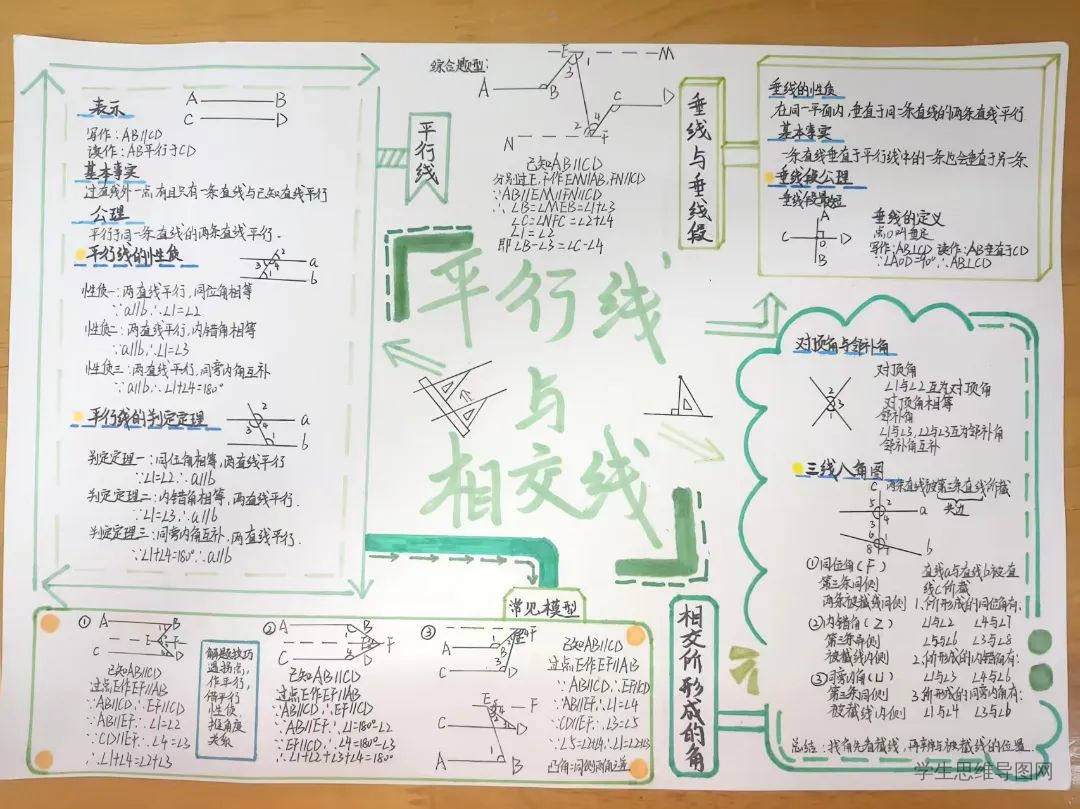 平行线
与
相交线
平行线
表示
A B
C D
写作：AB∥CD
读作：AB平行于CD
基本事实
过直线外一点，有且只有一条直线与已知直线平行
公理
平行于同一条直线的两条直线平行.
平行线的性质
a
b
性质一：两直线平行，同位角相等
∵a∥b，∴∠1=∠2
性质二：两直线平行，内错角相等
∵a∥b，∴∠1=∠3
性质三：两直线平行，同旁内角互补
∵a∥b，∴∠1+∠4=180°
平行线的判定定理
a
b
判定定理一：同位角相等，两直线平行
∵∠1=∠2∴a∥b
判定定理二：内错角相等，两直线平行.
∵∠1=∠3，∴a∥b
判定定理三：同旁内角互补，两直线平行.
∵∠1+∠4=180°∴a∥b
综合题型：
E M
A B
C D
N F
已知AB∥CD
∵AB∥EM∥FN∥CD
∴∠B=∠MEB=∠1+∠3
∠C=∠NFC=∠2+∠4
∠1=∠2
即∠B-∠3=∠C-∠4
垂线与垂线段
垂线的性质
在同一平面内，垂直于同一条直线的两条直线平行
基本事实
一条直线垂直于平行线中的一条也会垂直于另一条
垂线段公理
垂线段最短
A
C D
O
B
垂线的定义
点O叫垂足
写作：AB⊥CD 读作：AB垂直于CD
∵∠AOD=90°∴AB⊥CD
相交所形成的角
对顶角与邻补角
对顶角
∠1与∠2互为对顶角
对顶角相等
邻补角
∠1与∠3，∠2与∠3互为邻补角
邻补角互补
三线八角图
两条直线被第三条直线所截
共边
c
a
b
①同位角（F）
第三条同侧
两条被截线同侧
②内错角（Z）
第三条异侧
被截线内侧
③同旁内角（U）
第三条同侧
被截线内侧
直线a与直线b被直
线c所截
1、所形成的同位角有：
∠1与∠2 ∠4与∠7
∠5与∠6 ∠3与∠8
2、所形成的内错角有：
∠1与∠3 ∠4与∠6
3、所形成的同旁内角有：
∠1与∠4 ∠3与∠6
总结：找角先看截线，再看角与被截线的位置.
常见模型
①
A B
E F
C D
已知AB∥CD
过点E作EF∥AB
∵AB∥CD，∴EF∥CD
∵AB∥EF，∴∠1=∠2
∵CD∥EF，∴∠4=∠3
∴∠1+∠4=∠2+∠3
解题技巧
遇拐点，
作平行，
借平行
性质
推角度
关系
②
A B
E F
C D
已知AB∥CD
过点E作EF∥AB
∵AB∥CD，∴EF∥CD
∵AB∥EF，∴∠1=180°-∠2
∵EF∥CD，∴∠4=180°-∠3
∴∠1+∠2+∠3+∠4=360°
③
E F
C D
A B
已知AB∥CD
过点E作EF∥AB
∵AB∥CD，∴EF∥CD
∵AB∥EF，∴∠1=∠4
CD∥EF，∴∠3=∠5
∵∠5=∠2+∠4，∴∠1=∠2+∠3
学生思维导图网